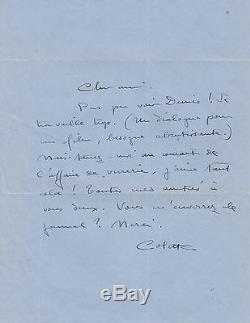 Cher ami.
Pas pu voir Denise ! Je
travaille trop. (Un dialogue pour
un film, besogne abrutissante.)
Mais tenez-moi au courant de
l'affaire de verrerie, j'aime tant
cela ! Toutes mes amitiés à
vous deux. Vous m'enverrez le
journal ? Merci.
Colette